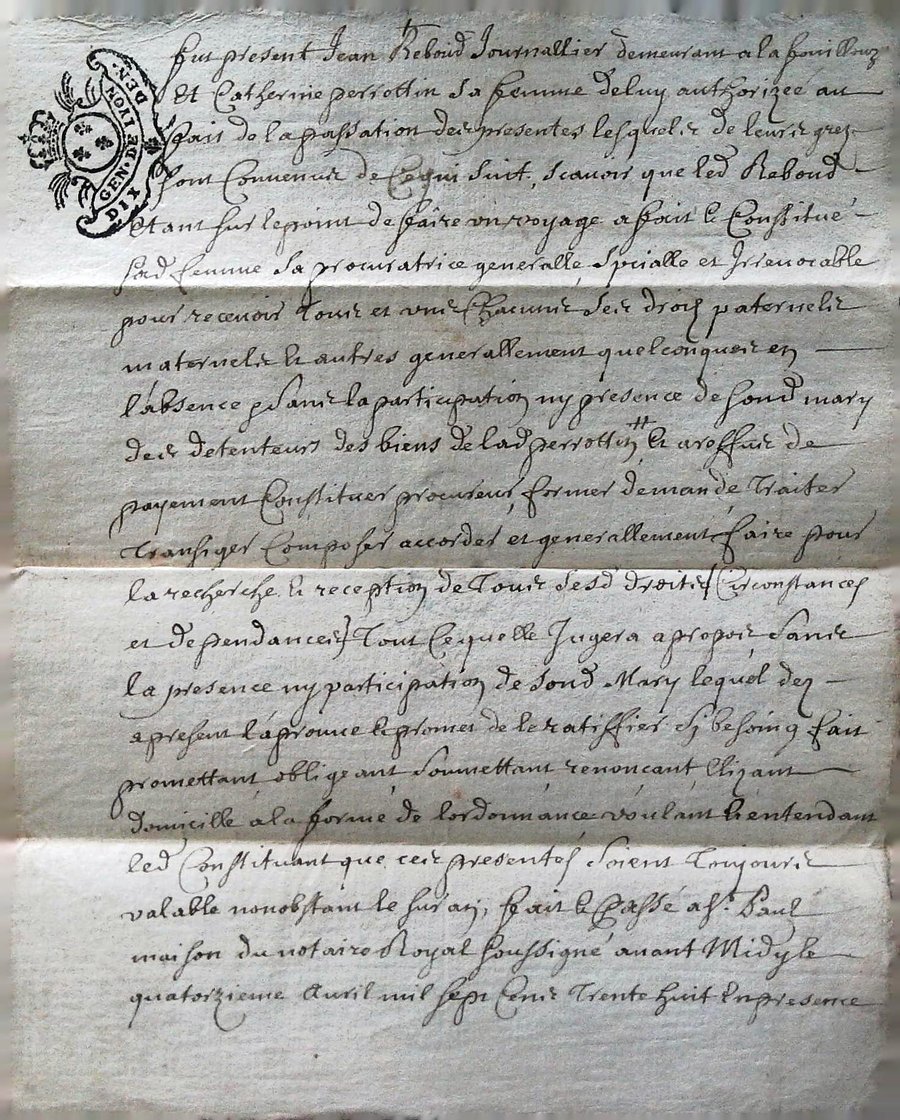 GEN. DE LYON
DIX DEN.
fut present Jean Reboud Journallier demeurant a la fouillouz
Et Catherine perrottin sa femme deluy authorizée au
fait de la passation des presentes lesquels de leurs grez
sont Convenus de Cequi suit, scavoir que led Reboud
Etant sur lepoint de faire un voyage a fait & Constitué
sad femme sa procuratrice generalle, specialle et Irrevocable
pour recevoir Tous et uns Chacuns ses drois paternels
maternels & autres generallement quelconques en
l'absence & sans la participation ny presence de sond mary
des detenteurs des biens de lad perrottin # & a reffus de
payement Constituer procureur, former demande, Traiter
Transiger Composer accorder et generallement faire pour
la recherche & reception de Tous sesd droits (Circonstances
et dependances) Tout Cequelle Jugera apropos, sans
la presence ny participation de sond Mary lequel des
apresent l'aprouve & promet de le ratiffier sy besoing fait
promettant, obligeant, soumettant, renoncant, Elizant
domicille a la forme de lordonnance, voulant & entendant
led Constituant que ces presentes soient Toujours
valable nonobstant le suran, fait & Passé a st. Paul
maison du notaire Royal soussigné avant Midy le
quatorzieme Avril mil sept Cens Trente huit En presence